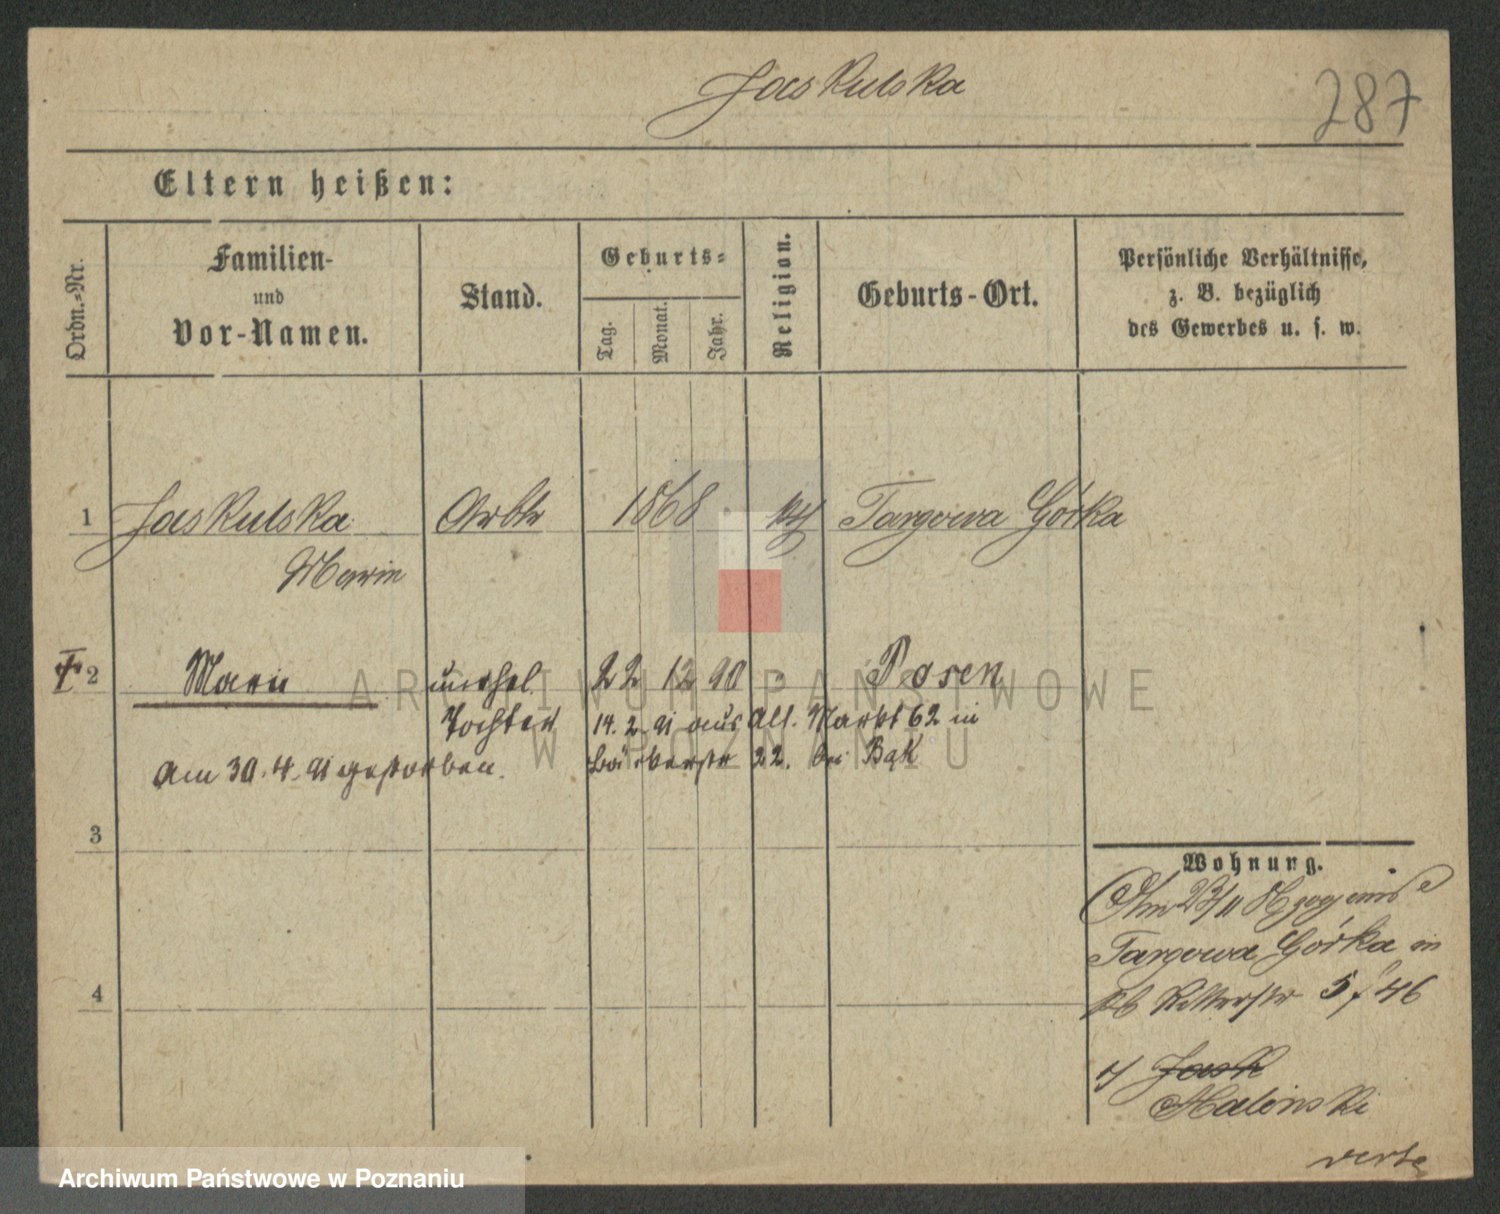 Jaskulska
287
Eltern heißen:
Ordn.-Nr.
Familien-
und
Vor-Namen.
Stand.
Geburts-
Tag.
Monat.
Jahr.
Religion.
Geburts-Ort.
Persönliche Verhältnisse,
z. B. bezüglich
des Gewerbes u. s. w.
1 Jaskulska Arbtr 1868 Targowa Górka
Marie
2 Marie unehel. 22 12 90 Posen
Tochter 14. 2. 91 aus Alt. Markt 62 in
am 30. 4. 91 gestorben. 22. bei Bąk
3
Wohnung.
Am 23/11
Targowa Górka in
4
Ritterstr 5 / 46
Jask
Malinski
verte
ARCHIWUM PAŃSTWOWE
W POZNANIU
Archiwum Państwowe w Poznaniu